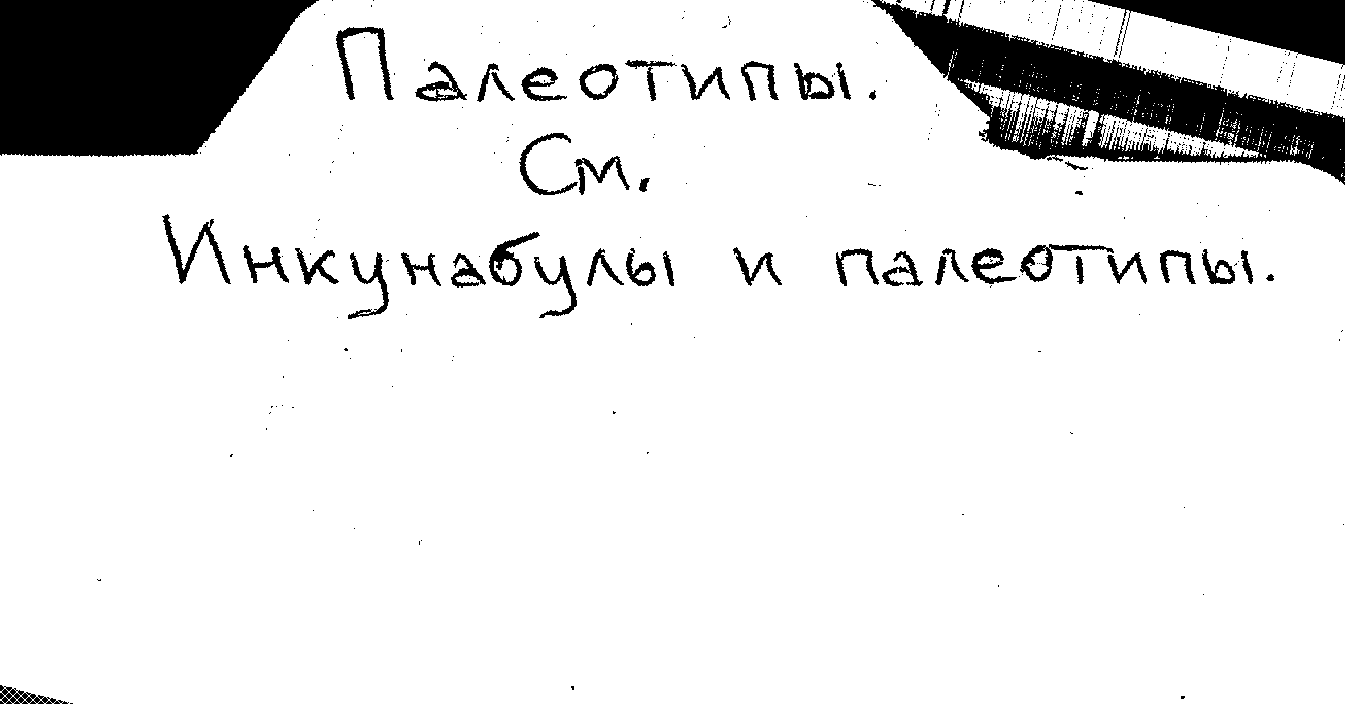 Палеотипы.
См.
Инкунабулы и палеотипы.